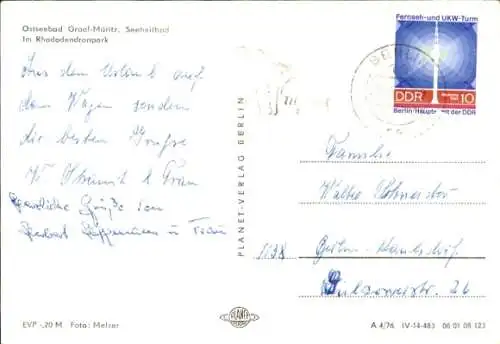 Ostseebad Graal-Müritz, Seeheilbad
Im Rhododendronpark
Aus dem Urlaub auf
dem Wagen senden
die besten Grüße
u. Frau
Herzliche Grüße von
Herbert u Frau
EVP -,20 M Foto: Melzer
PLANET-VERLAG BERLIN
PLANET
BERLIN
Fernseh- und UKW-Turm
DDR
10
Berlin/Hauptstadt der DDR
Familie
Walter Schneider
1138 Berlin-Kaulsdorf
26
A 4/76 IV-14-483 06 01 08 123